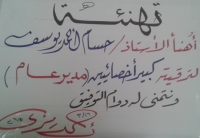 تهنئة
أهنأ الأستاذ/ حسام أحمد يوسف
لترقية كبير أخصائيين (مدير عام)
ونتمنى له دوام التوفيق